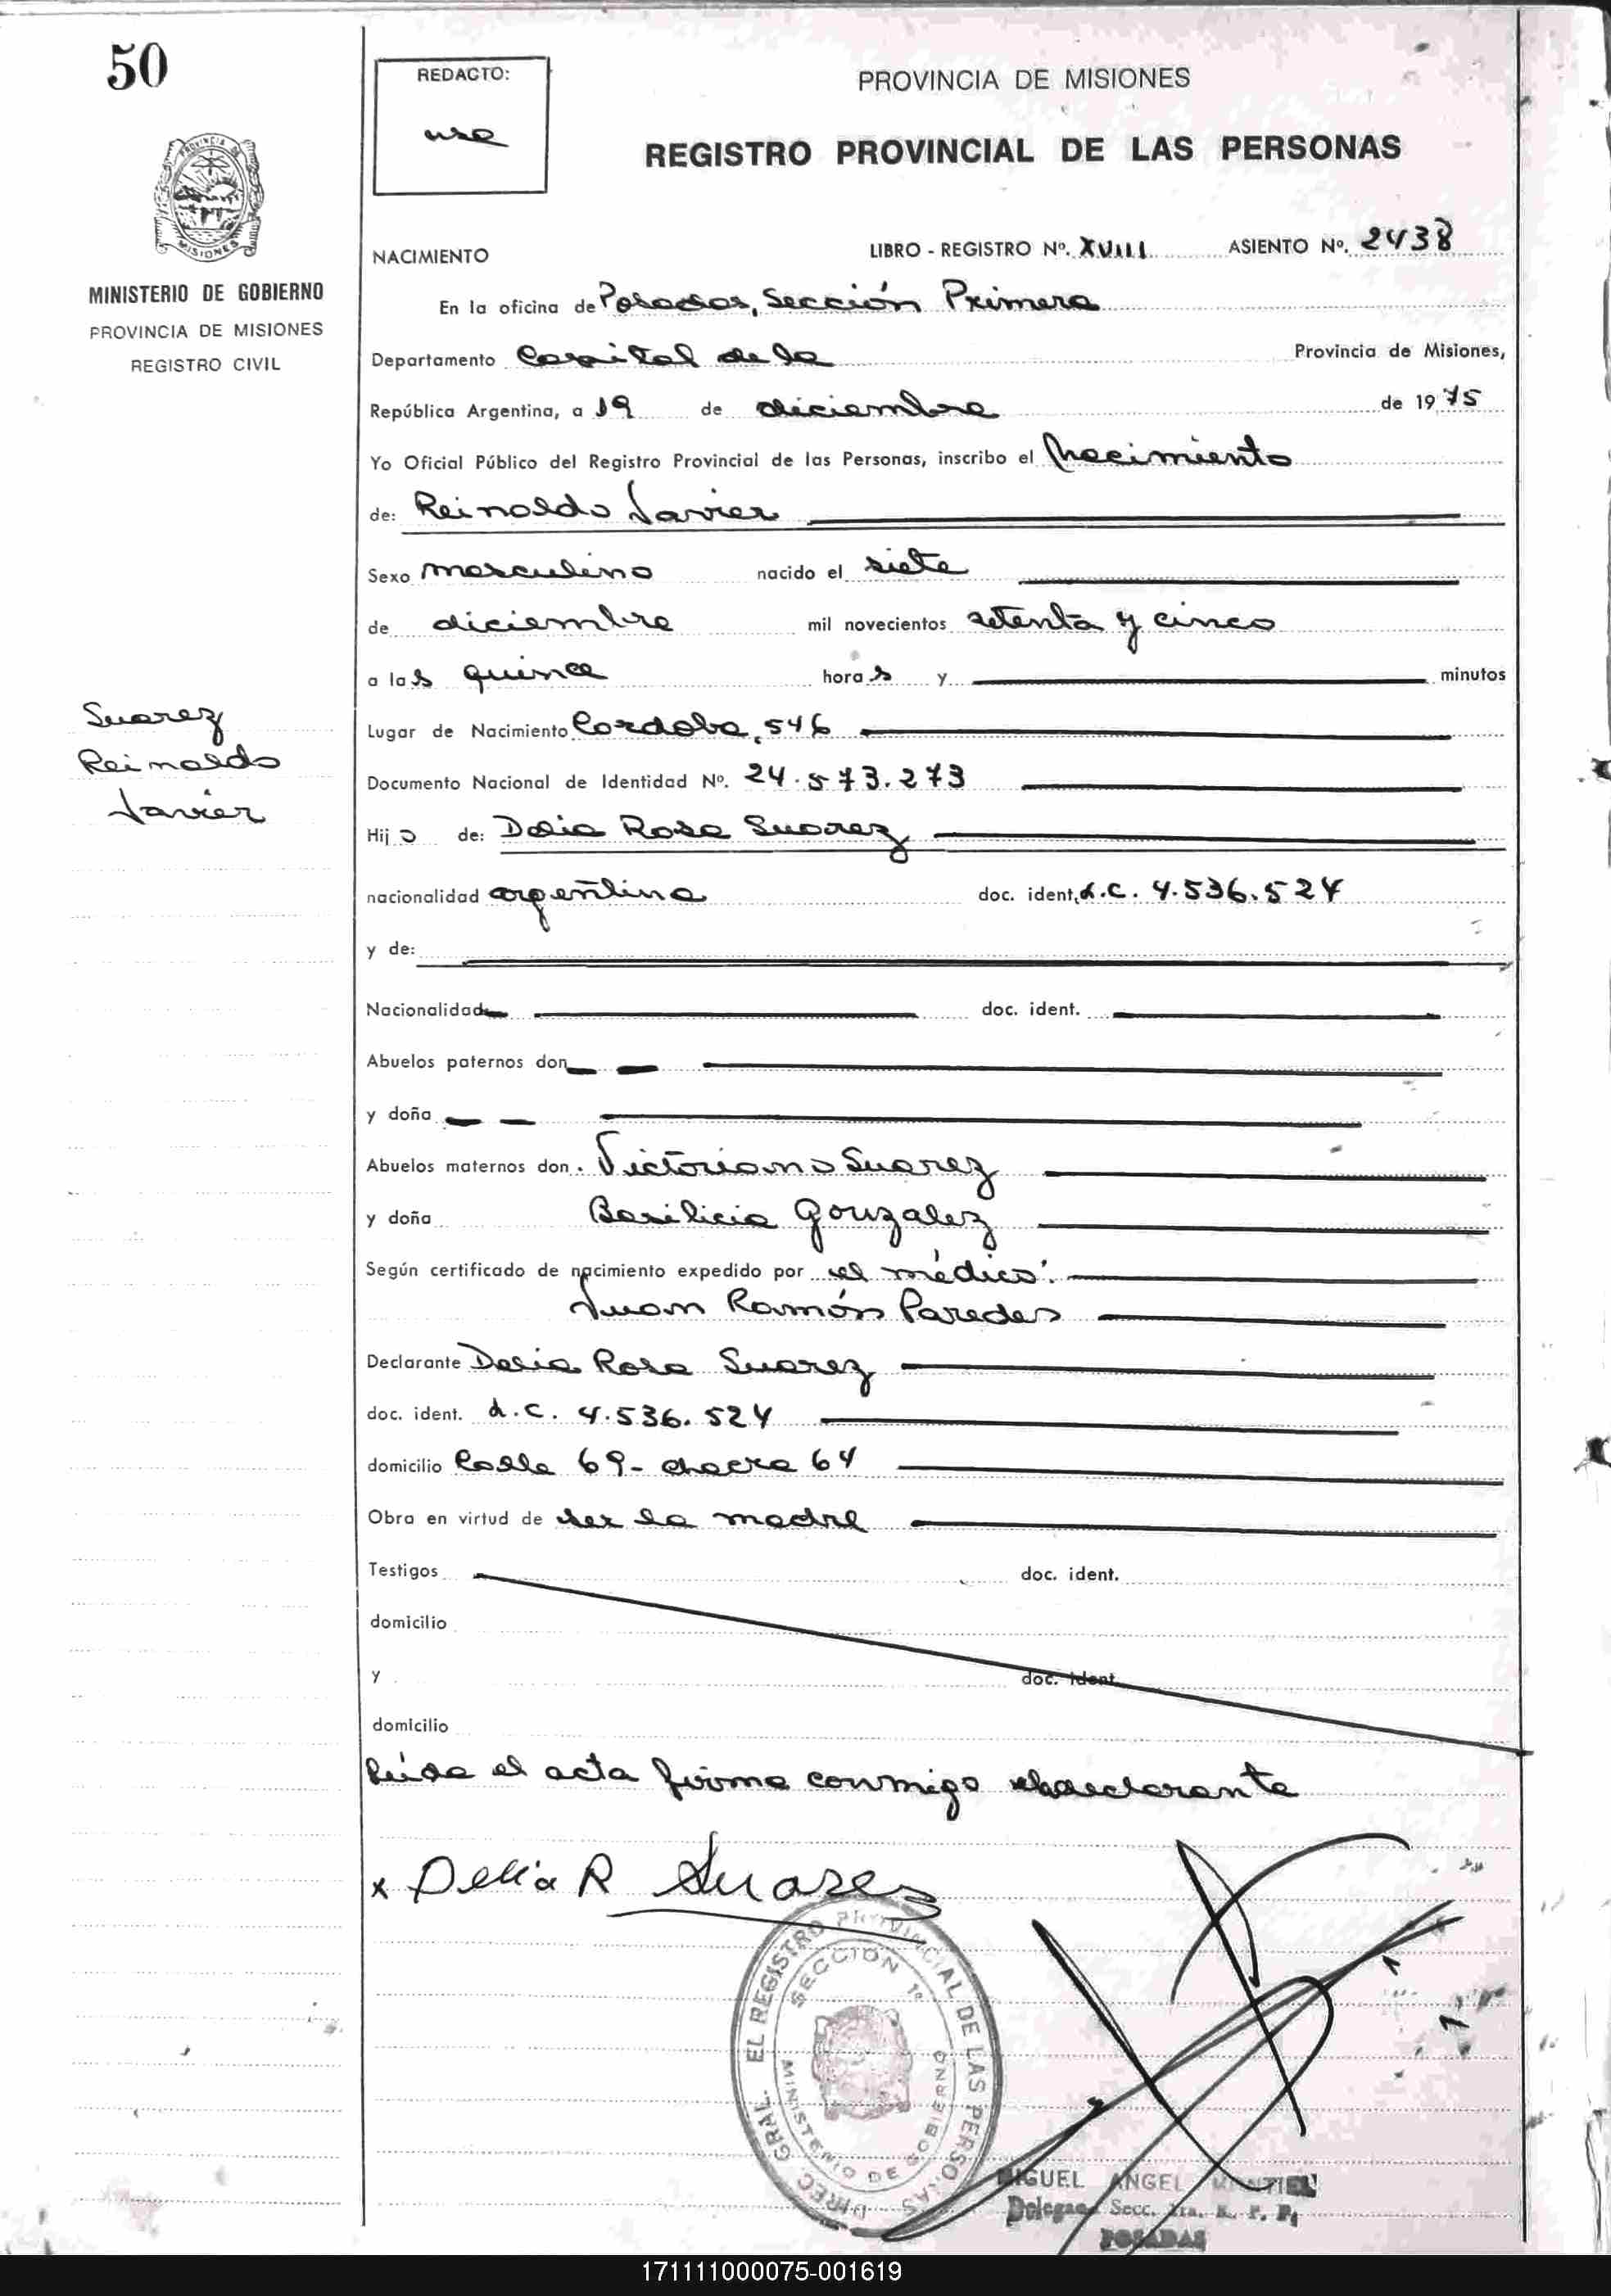 50
REDACTO:
PROVINCIA DE MISIONES
REGISTRO PROVINCIAL DE LAS PERSONAS
PROVINCIA DE MISIONES
MINISTERIO DE GOBIERNO
PROVINCIA DE MISIONES
REGISTRO CIVIL
NACIMIENTO LIBRO - REGISTRO Nº. XVIII ASIENTO Nº. 2438
En la oficina de Posadas, Sección Primera
Departamento Capital de la Provincia de Misiones,
República Argentina, a 19 de diciembre de 1975
Yo Oficial Público del Registro Provincial de las Personas, inscribo el Nacimiento
de: Reinaldo Javier
Sexo masculino nacido el siete
de diciembre mil novecientos setenta y cinco
a las quince horas y minutos
Suarez
Reinaldo
Javier
Lugar de Nacimiento Cordoba, 546
Documento Nacional de Identidad Nº. 24.573.273
Hijo de: Delia Rosa Suarez
nacionalidad argentina doc. ident. L.C. 4.536.524
y de:
Nacionalidad doc. ident.
Abuelos paternos don
y doña
Abuelos maternos don. Victoriano Suarez
y doña Basilicia Gonzalez
Según certificado de nacimiento expedido por el médico:
Juan Ramón Paredes
Declarante Delia Rosa Suarez
doc. ident. L.C. 4.536.524
domicilio Calle 69- chacra 64
Obra en virtud de ser la madre
Testigos doc. ident.
domicilio
y doc. ident.
domicilio
Leída el acta firma conmigo la declarante
x Delia R Suarez
DIREC. GRAL. EL REGISTRO PROVINCIAL DE LAS PERSONAS
SECCION 1ª
MINISTERIO DE GOBIERNO
MIGUEL ANGEL MONTIEL
Delegado Secc. 1ra. R. P. P.
POSADAS
171111000075-001619